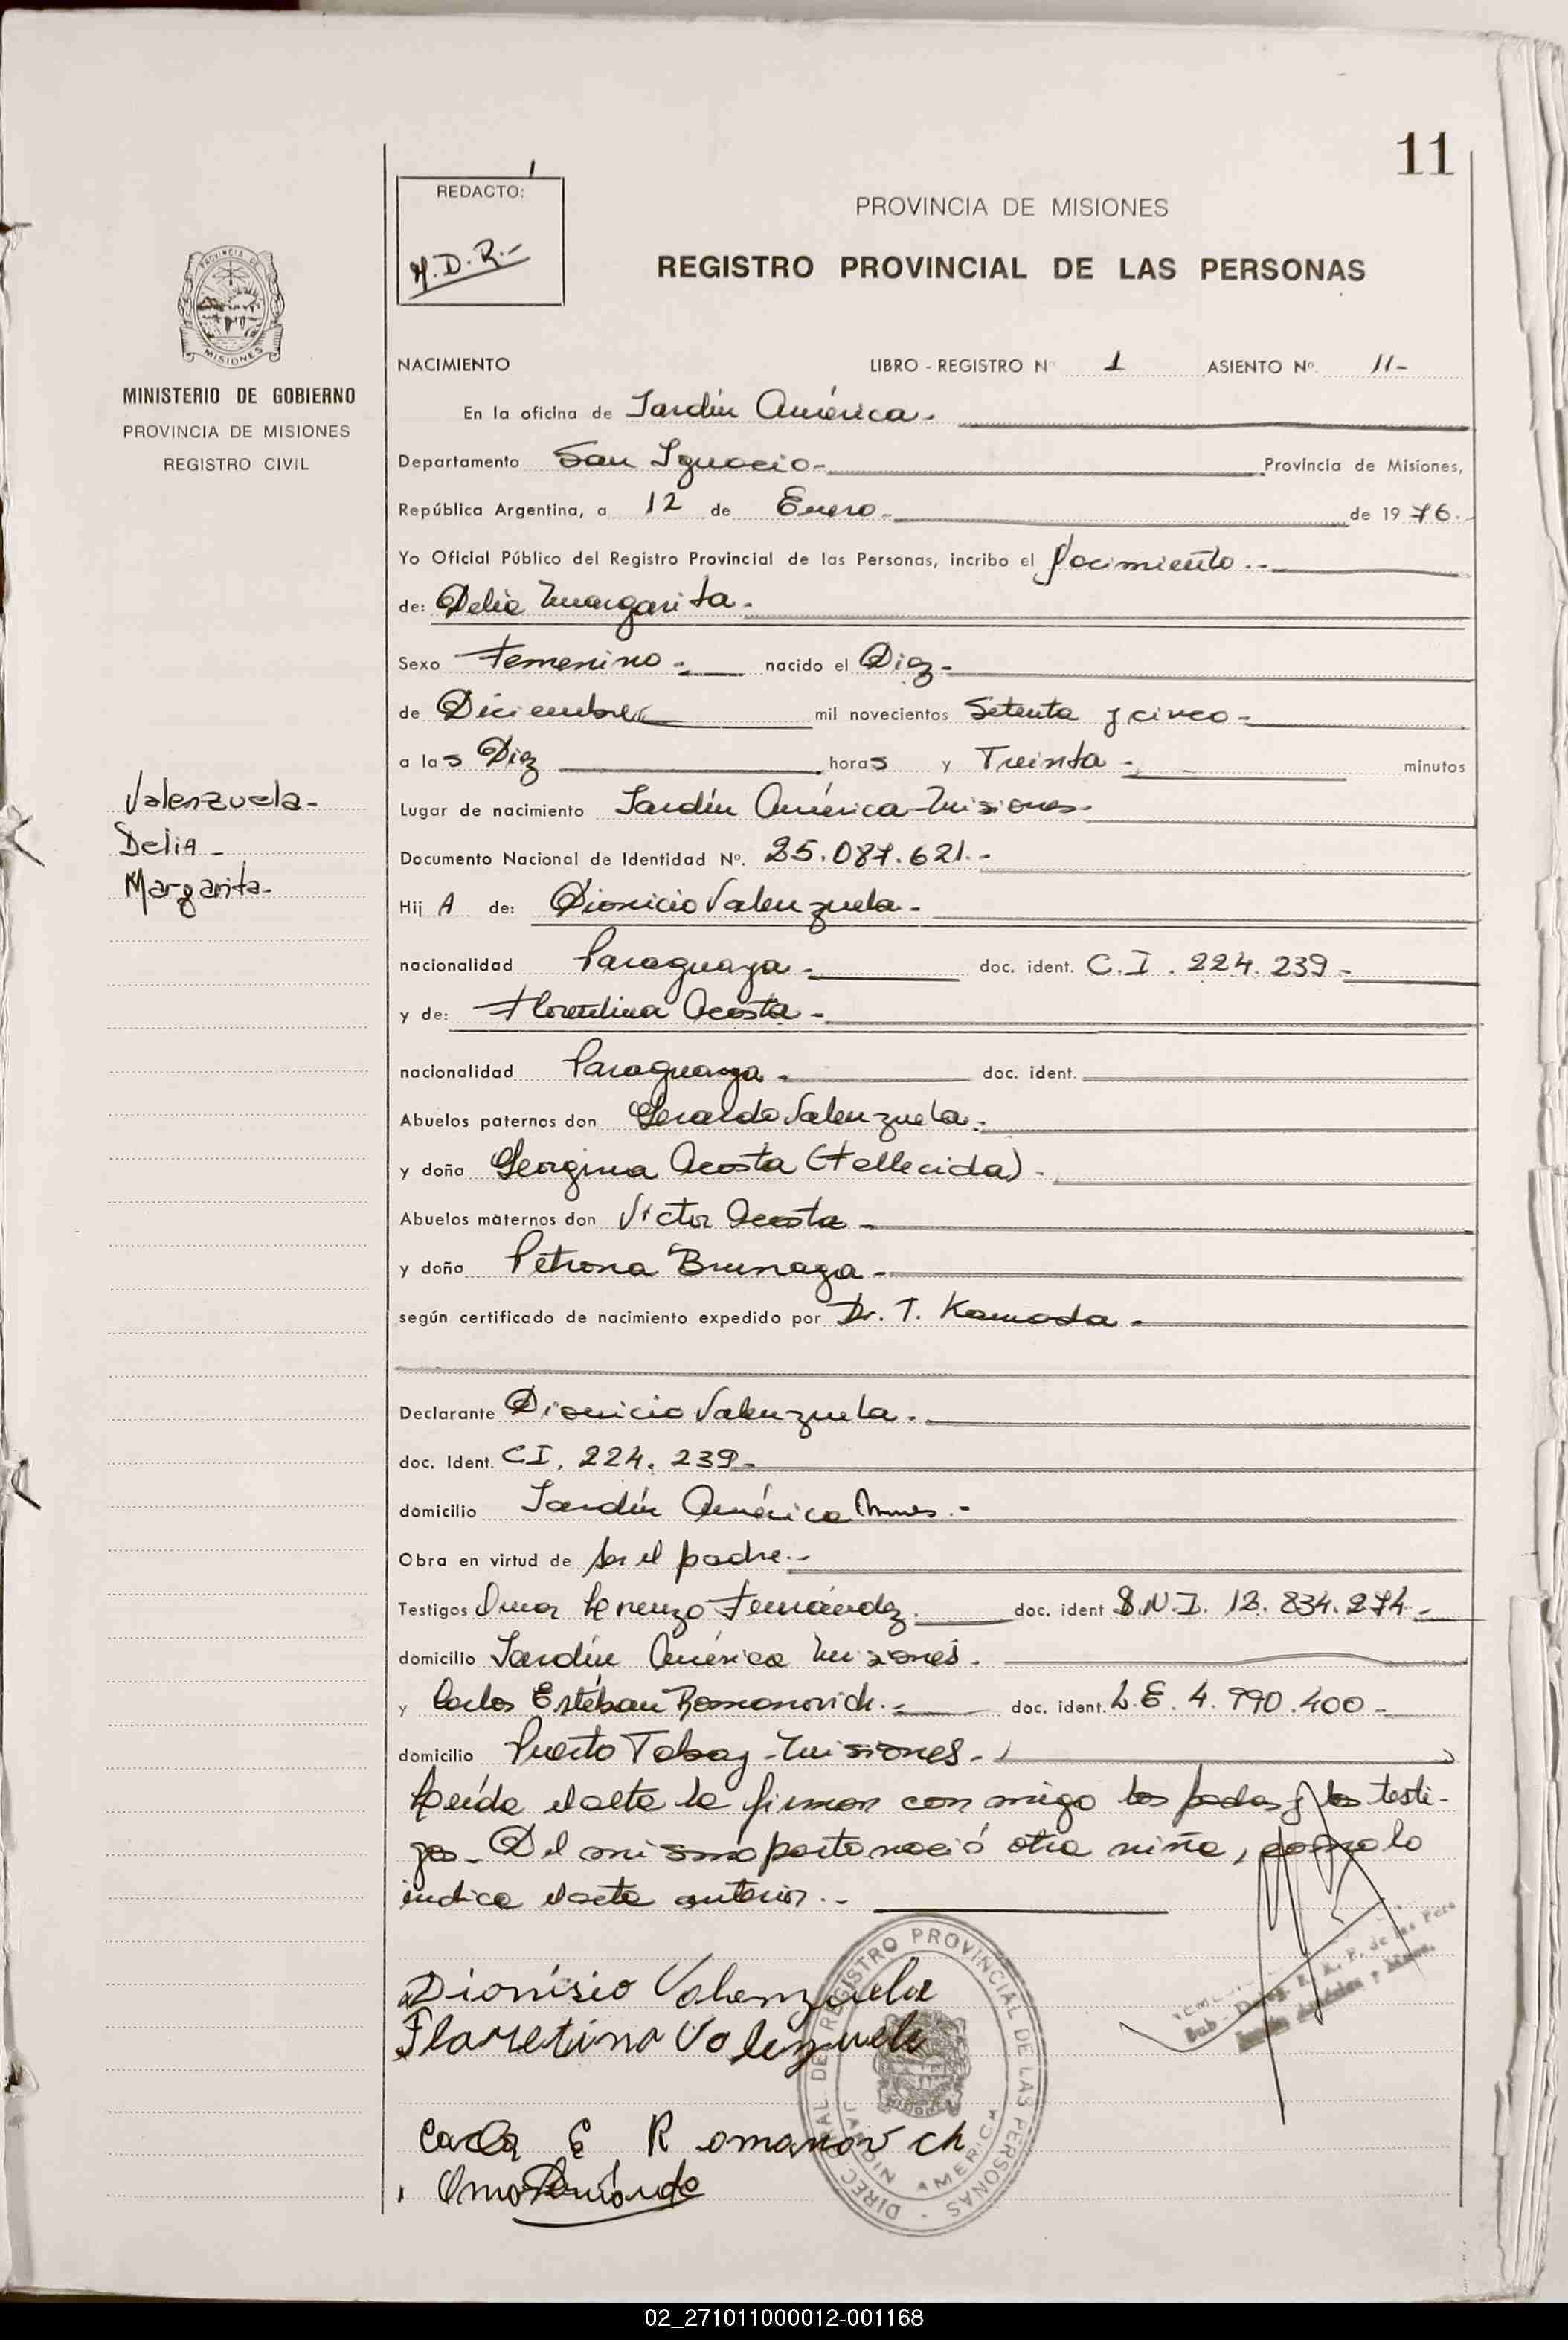 11
REDACTO:
M.D.R.-
PROVINCIA DE MISIONES
REGISTRO PROVINCIAL DE LAS PERSONAS
PROVINCIA DE
MISIONES
MINISTERIO DE GOBIERNO
PROVINCIA DE MISIONES
REGISTRO CIVIL
Valenzuela-
Delia-
Margarita-
NACIMIENTO LIBRO - REGISTRO Nº 1 ASIENTO Nº. 11-
En la oficina de Jardín América.
Departamento San Ignacio- Provincia de Misiones,
República Argentina, a 12 de Enero- de 19 76.
Yo Oficial Público del Registro Provincial de las Personas, incribo el Nacimiento.-
de: Delia Margarita.
Sexo Femenino- nacido el Diez-
de Diciembre mil novecientos Setenta y cinco-
a las Diez horas y Treinta- minutos
Lugar de nacimiento Jardín América-Misiones-
Documento Nacional de Identidad Nº. 25.087.621.-
Hij A de: Dionicio Valenzuela-
nacionalidad Paraguaya- doc. ident. C.I. 224.239-
y de: Florentina Acosta-
nacionalidad Paraguaya. doc. ident.
Abuelos paternos don Gerardo Valenzuela.-
y doña Georgina Acosta (Fallecida).
Abuelos maternos don Victor Acosta-
y doña Petrona Brunaga-
según certificado de nacimiento expedido por Dr. T. Kamada.
Declarante Dionicio Valenzuela.
doc. Ident. CI. 224. 239-
domicilio Jardín América Mnes.-
Obra en virtud de ser el padre.-
Testigos Omar Lorenzo Fernández. doc. ident D.N.I. 12.834.274-
domicilio Jardín América Misiones.
y Carlos Estéban Romanovich.- doc. ident. L.E. 4.990.400-
domicilio Puerto Tabay-Misiones-
Leída el acta la firman con migo los padres y los testi-
gos- Del mismo parto nació otra niña, como lo
indica el acta anterior.-
Dionisio Valenzuela
Floretina Valenzuela
Carlos E Romanovich
DIREC. GRAL DEL REGISTRO PROVINCIAL DE LAS PERSONAS
JARDIN AMERICA
02_271011000012-001168